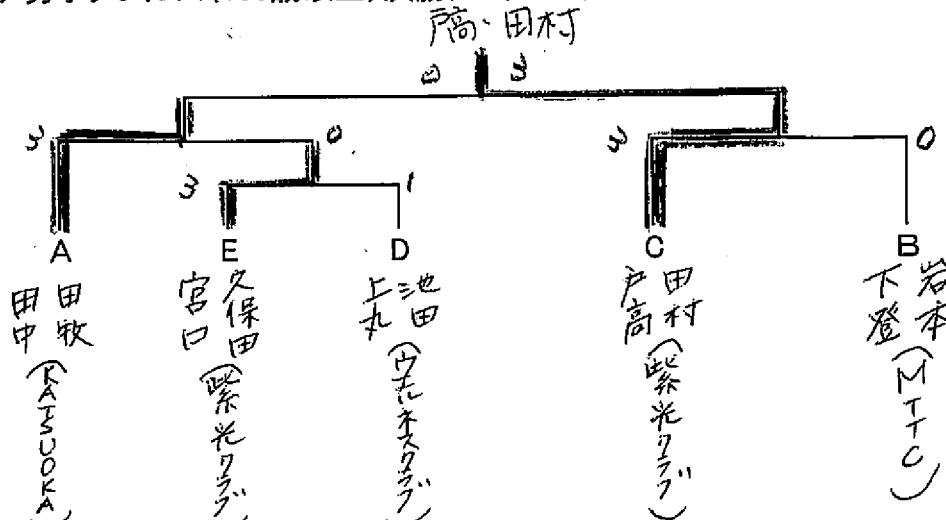 戸高・田村
0 3
3 0 3 0
3 1
A E D C B
田中 田牧 (KATSUOKA)
宮口 久保田 (紫光クラブ)
上丸 池田 (ウエルネスクラブ)
戸高 田村 (紫光クラブ)
下登 岩本 (MTTC)